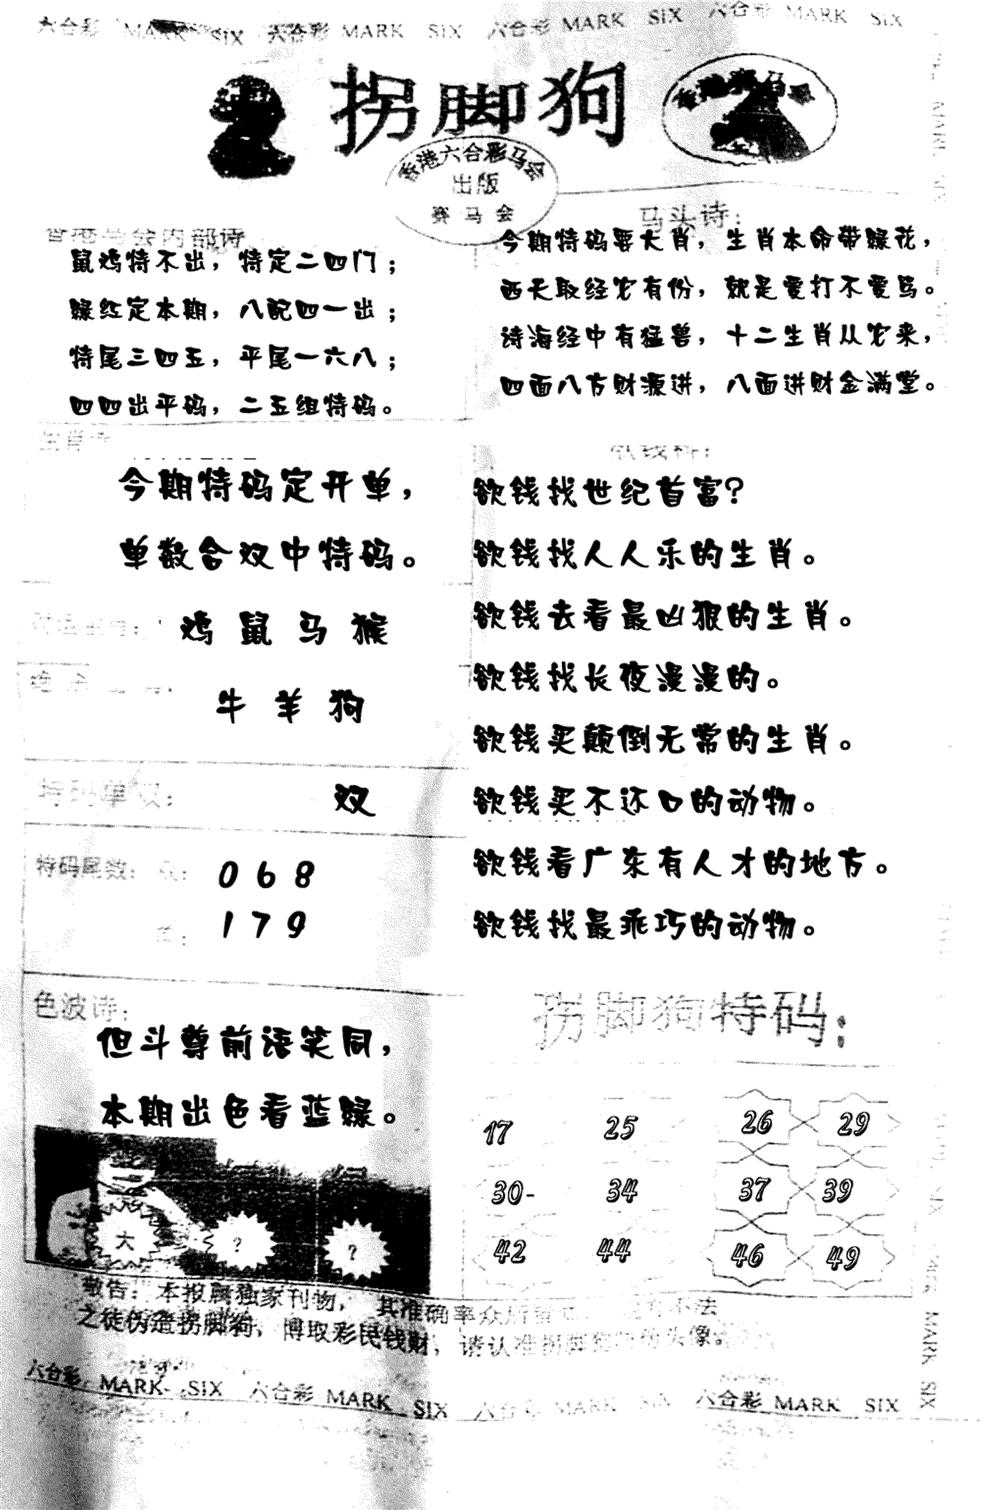 六合彩 MARK SIX 六合彩 MARK SIX 六合彩 MARK SIX 六合彩 MARK SIX
拐脚狗
香港赛马会
香港六合彩马会
出版
赛马会
马头诗：
今期特码要大肖，生肖本命带绿花，
西天取经它有份，就是爱打不爱骂。
诗海经中有猛兽，十二生肖从它来，
四面八方财源进，八面进财金满堂。
鼠鸡特不出，特定二四门；
绿红定本期，八配四一出；
特尾三四五，平尾一六八；
四四出平码，二五组特码。
今期特码定开单，
单数合双中特码。
鸡 鼠 马 猴
牛 羊 狗
特码单双： 双
特码尾数： 双： 0 6 8
单： 1 7 9
欲钱找世纪首富?
欲钱找人人乐的生肖。
欲钱去看最凶狠的生肖。
欲钱找长夜漫漫的。
欲钱买颠倒无常的生肖。
欲钱买不还口的动物。
欲钱看广东有人才的地方。
欲钱找最乖巧的动物。
色波诗：
但斗尊前语笑同，
本期出色看蓝绿。
大 ? ?
拐脚狗特码：
17 25 26 29
30- 34 37 39
42 44 46 49
敬告：本报属独家刊物， 其准确率众所 不法
之徒伪造拐脚狗，博取彩民钱财，请认准拐脚狗 头像
六合彩 MARK SIX 六合彩 MARK SIX 六合彩 MARK SIX 六合彩 MARK SIX
MARK SIX